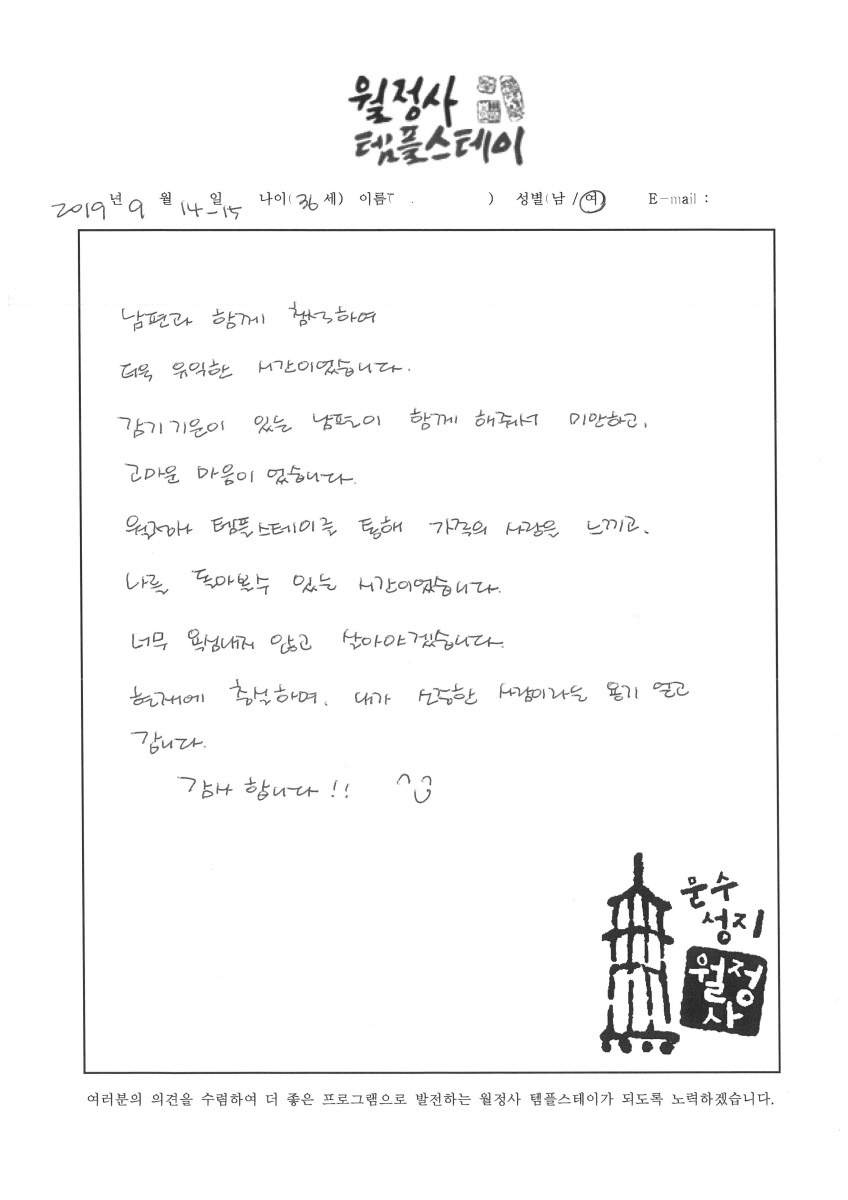 월정사
템플스테이
2019년 9월 14-15일 나이(36세) 이름( ) 성별(남/여) E-mail :
남편과 함께 참석하여
더욱 유익한 시간이었습니다.
감기기운이 있는 남편이 함께 해줘서 미안하고,
고마운 마음이 었습니다.
월정사 템플스테이를 통해 가족의 사랑을 느끼고,
나를 돌아볼수 있는 시간이었습니다.
너무 욕심내지 않고 살아야겠습니다.
현재에 충실하며, 내가 소중한 사람이라는 용기 얻고
갑니다.
감사 합니다!!
문수
성지
월정
사
여러분의 의견을 수렴하여 더 좋은 프로그램으로 발전하는 월정사 템플스테이가 되도록 노력하겠습니다.